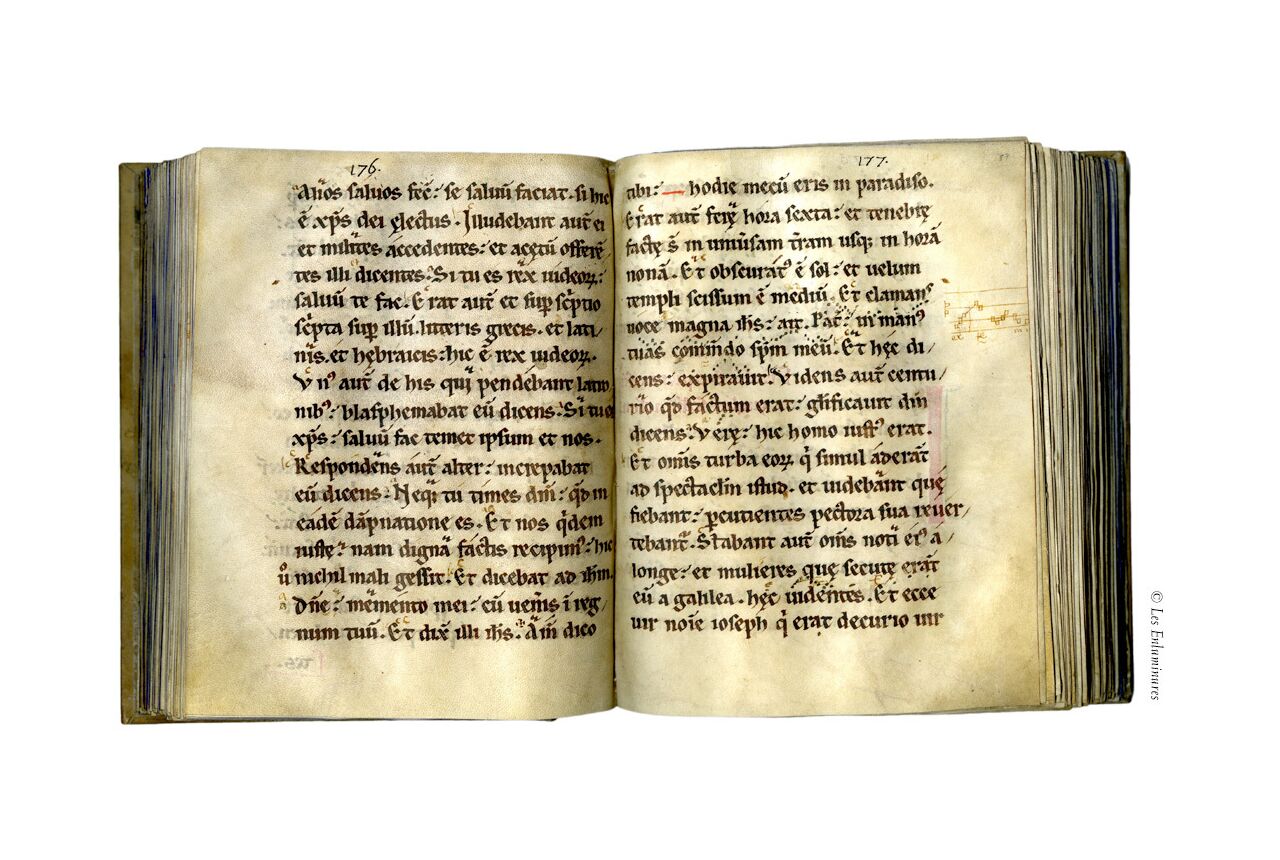 176.
Alios saluos fec̄: se saluū faciat. si hic
ē xp̄s dei electus. Illudebant aut̄ ei
et milites accedentes: et acetū offerē
tes illi dicentes. Si tu es rex iudeoꝝ:
saluū te fac. Erat aut̄ et suꝑ sc̄ptio
sc̄pta suꝑ illū. litteris grecis. et lati/
nis. et hębraicis: hic ē rex iudeoꝝ.
Vn᾿ aut̄ de his qui pendebant latro
nib᾿: blasphemabat eū dicens. Si tu es
xp̄s: saluū fac temet ipsum et nos.
Respondens aut̄ alter: increpabat
eū dicens. Neq; tu times dm̄: qd̄ in
eadē dāpnatione es. Et nos q̇dem
iuste: nam digna factis recipim᾿: hic
u̇ nichil mali gessit. Et dicebat ad ih̄m.
Dn̄e: memento mei: cū uenis i reg/
num tuū. Et dix̄ illi ih̄s. Am̄ dico
177.
87
tibi: hodie mecū eris in paradiso.
Erat aut̄ ferę hora sexta: et tenebrę
factę s̄ in uniūsam t̄ram usq; in horā
nonā. Et obscurat᾿ ē sol: et uelum
templi scissum ē mediū. Et clamans᾿
uoce magna ih̄s: ait. Pat̄: in man᾿
tuas com̄ndo sp̄m meū. Et hęc di/
cens: expirauit. Videns aut̄ centu/
rio qd̄ factum erat: gl̄ificauit dm̄
dicens. Verę: hic homo iust᾿ erat.
Et om̄s turba eoꝝ q̇ simul aderāt
ad spectaclm̄ istud. et uidebant quę
fiebant: ꝑcutientes pectora sua reuer/
tebant̄. Stabant aut̄ om̄s noti ei᾿ a/
longe: et mulieres quę secutę erāt
eū a galilea. hęc uidentes. Et ecce
uir noīe ioseph q̇ erat decurio uir
© Les Enluminures